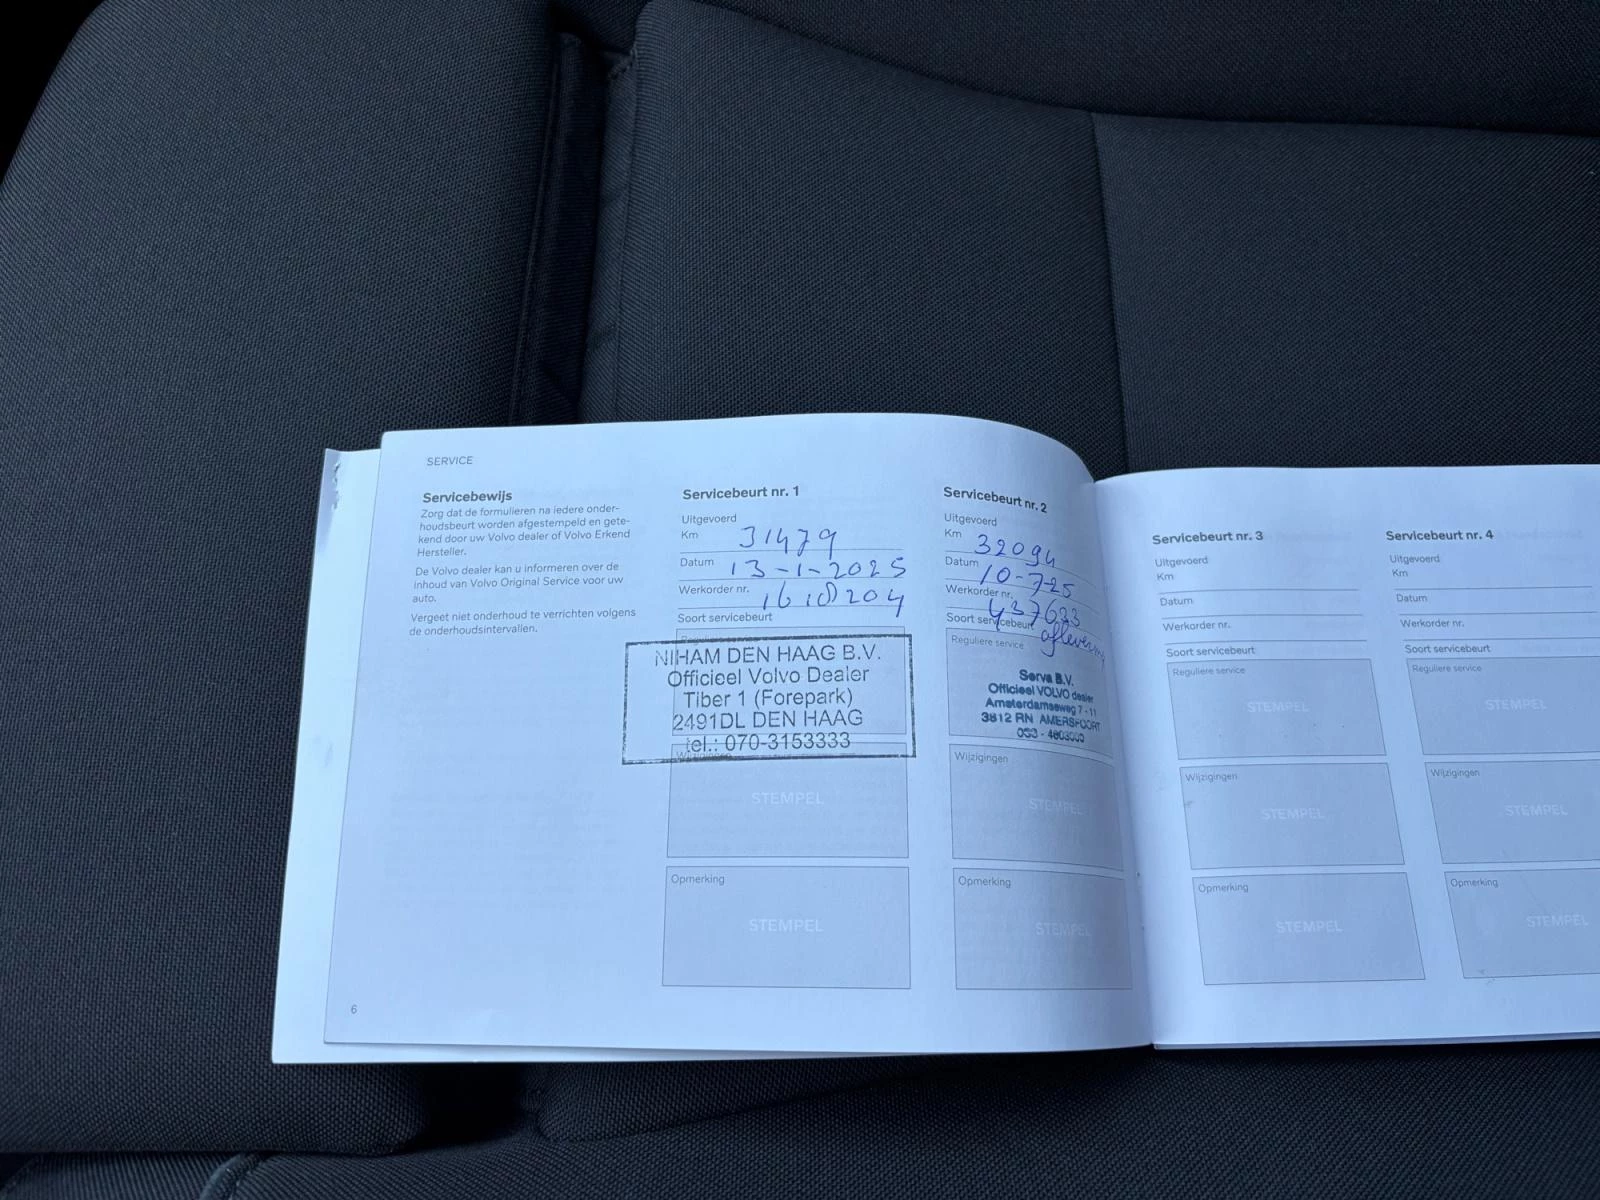 SERVICE
Servicebewijs
Zorg dat de formulieren na iedere onder-
houdsbeurt worden afgestempeld en gete-
kend door uw Volvo dealer of Volvo Erkend
Hersteller.
De Volvo dealer kan u informeren over de
inhoud van Volvo Original Service voor uw
auto.
Vergeet niet onderhoud te verrichten volgens
de onderhoudsintervallen.
6
Servicebeurt nr. 1
Uitgevoerd
Km 31479
Datum 13-1-2025
Werkorder nr.
Soort servicebeurt
Reguliere service
NIHAM DEN HAAG B.V.
Officieel Volvo Dealer
Tiber 1 (Forepark)
2491DL DEN HAAG
tel.: 070-3153333
Wijzigingen
STEMPEL
Opmerking
STEMPEL
Servicebeurt nr. 2
Uitgevoerd
Km 32094
Datum 10-7-25
Werkorder nr. 437623
Soort servicebeurt
Reguliere service
Serva B.V.
Officieel VOLVO dealer
Amsterdamseweg 7-11
3812 RN AMERSFOORT
Wijzigingen
STEMPEL
Opmerking
STEMPEL
Servicebeurt nr. 3
Uitgevoerd
Km
Datum
Werkorder nr.
Soort servicebeurt
Reguliere service
STEMPEL
Wijzigingen
STEMPEL
Opmerking
STEMPEL
Servicebeurt nr. 4
Uitgevoerd
Km
Datum
Werkorder nr.
Soort servicebeurt
Reguliere service
STEMPEL
Wijzigingen
STEMPEL
Opmerking
STEMPEL